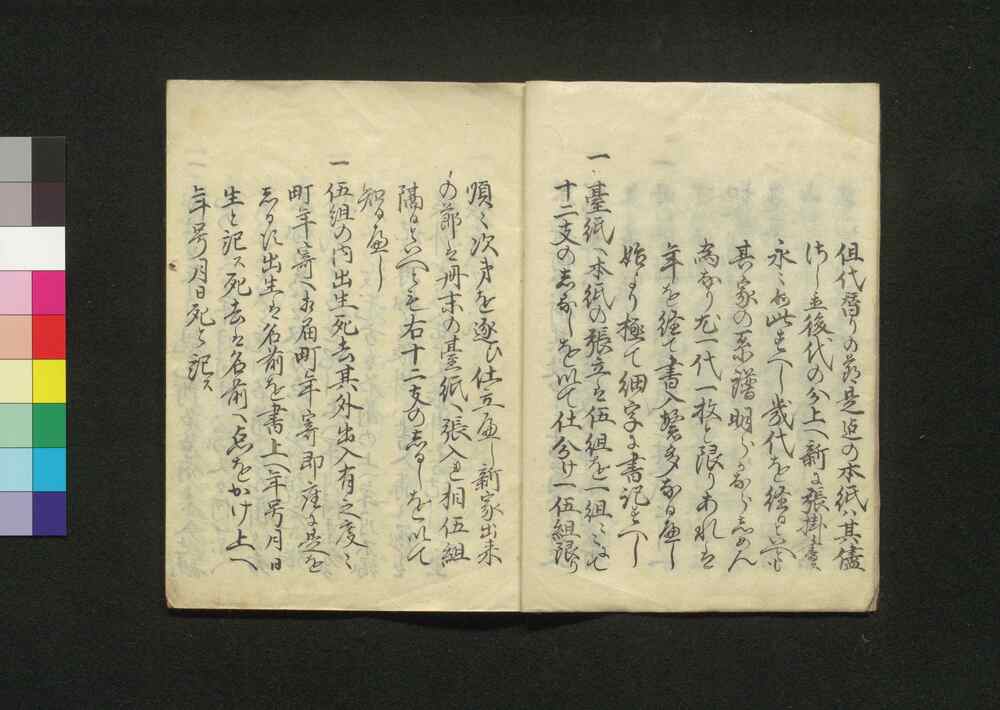 但代替りの節是迄の本紙ハ其儘
いたし置後代の分上へ新に張掛
永々如此すへし幾代を経ると雖も
其家の系譜明らかならしめん
為なり尤一代一枚と限りあれは
年を経て書入繁多なるへし
始より極て細字に書記すへし
一 臺紙へ本紙の張立は伍組を一組ことに
十二支のしるしを以て仕分け一伍組限り
順々次第を逐ひ仕立へし新家出来
の節は冊末の臺紙へ張入れ相伍組
隔るといへとも右十二支のしるしを以て
知るへし
一 伍組の内出生死去其外出入有之度々
町年寄へ相届町年寄即座に是を
しるす出生は名前を書上へ年号月日
生と記ス死去は名前へ点をかけ上へ
年号月日死と記ス